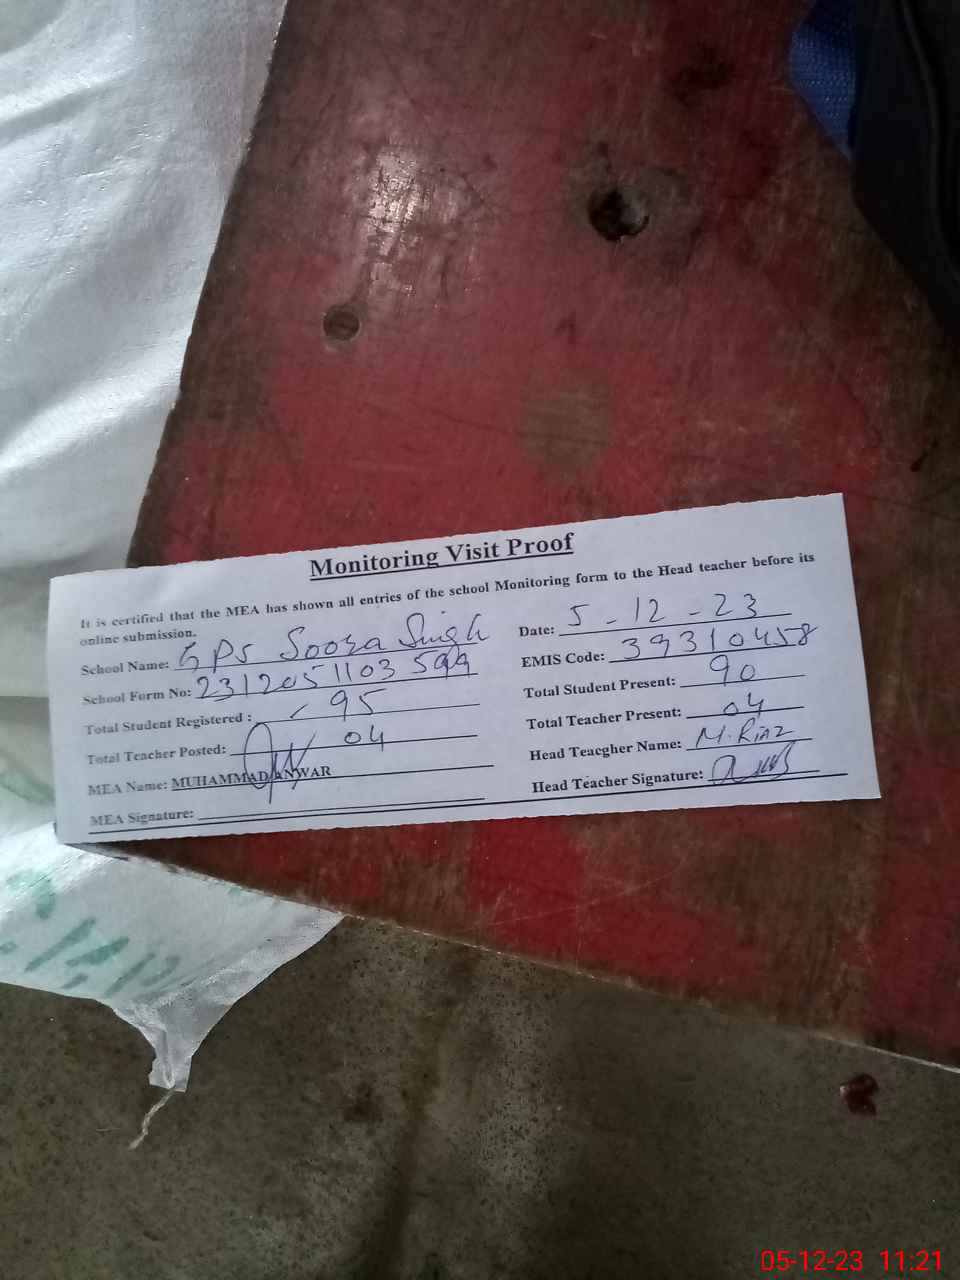 Monitoring Visit Proof
It is certified that the MEA has shown all entries of the school Monitoring form to the Head teacher before its
online submission.
School Name: GPS Soora Singh
Date: 5-12-23
School Form No: 2312051103599
EMIS Code: 39310458
Total Student Registered : 95
Total Student Present: 90
Total Teacher Posted: 04
Total Teacher Present: 04
MEA Name: MUHAMMAD ANWAR
Head Teacgher Name: M. Riaz
MEA Signature:
Head Teacher Signature:
05-12-23 11:21